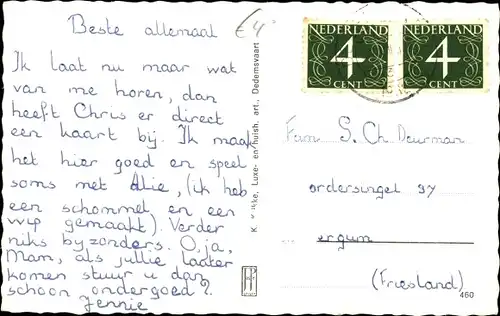 Beste allemaal
€4
Ik laat nu maar wat
van me horen, dan
heeft Chris er direct
een kaart bij. Ik maak
het hier goed en speel
soms met Alie, (ik heb
een schommel en een
wip gemaakt). Verder
niks byzonders. O, ja,
Mam, als jullie laater
komen stuur u dan
schoon ondergoed?
Jennie
Luxe- en huish. art., Dedemsvaart
NEDERLAND
4
CENT
NEDERLAND
4
CENT
Fam S. Ch. Deurman
ordersingel 37
ergum
(Friesland)
460